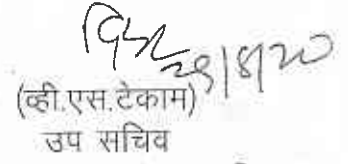 29/8/20
(व्ही.एस.टेकाम)
उप सचिव